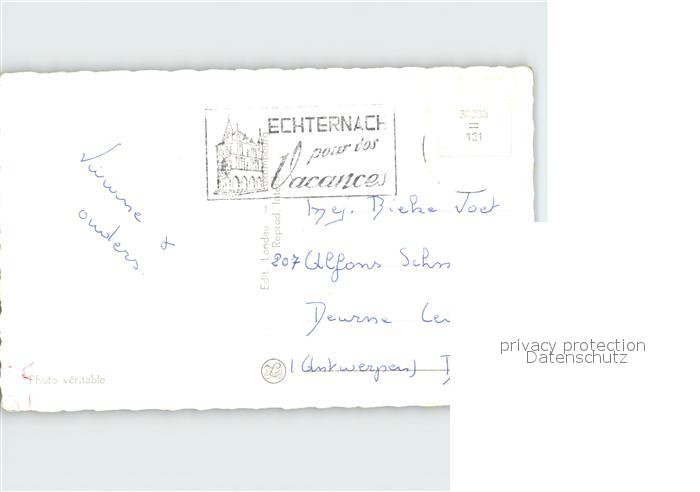 ECHTERNACH
pour vos
Vacances
30233
121
Vivienne +
ouders.
Mej. Bieke Voet
207 Alfons Schn
Deurne
(Antwerpen)
Edit. Landau
Reprod. Int
Photo véritable
privacy protection
Datenschutz